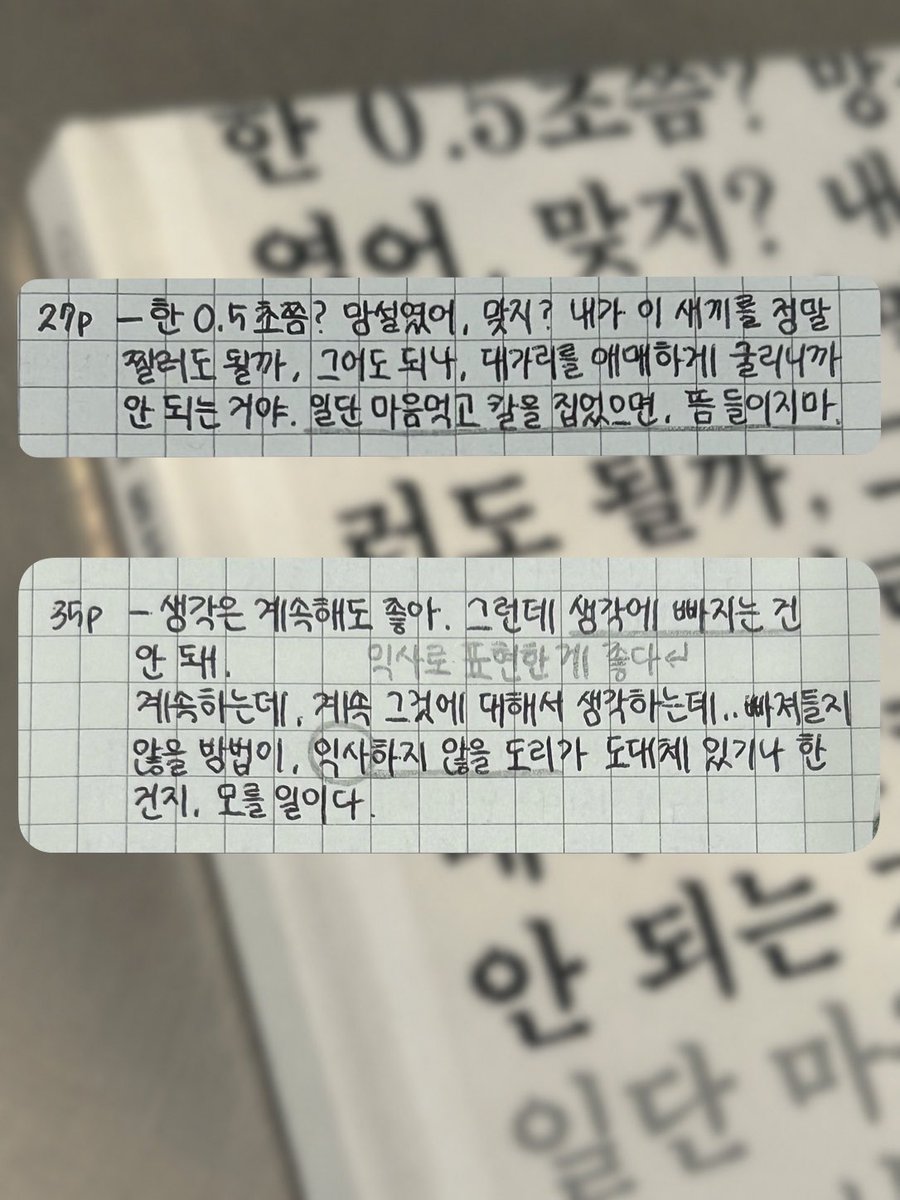 한 0.5초쯤? 망
였어, 맞지? 내
27p – 한 0.5초쯤? 망설였어, 맞지? 내가 이 새끼를 정말
찔러도 될까, 그어도 되나, 대가리를 애매하게 굴리니까
안 되는 거야. 일단 마음먹고 칼을 집었으면, 뜸 들이지마.
러도 될까,
35p – 생각은 계속해도 좋아. 그런데 생각에 빠지는 건
안 돼. 익사로 표현한 게 좋다
계속하는데, 계속 그것에 대해서 생각하는데.. 빠져들지
않을 방법이, 익사하지 않을 도리가 도대체 있기나 한
건지, 모를 일이다.
안 되는
일단 마